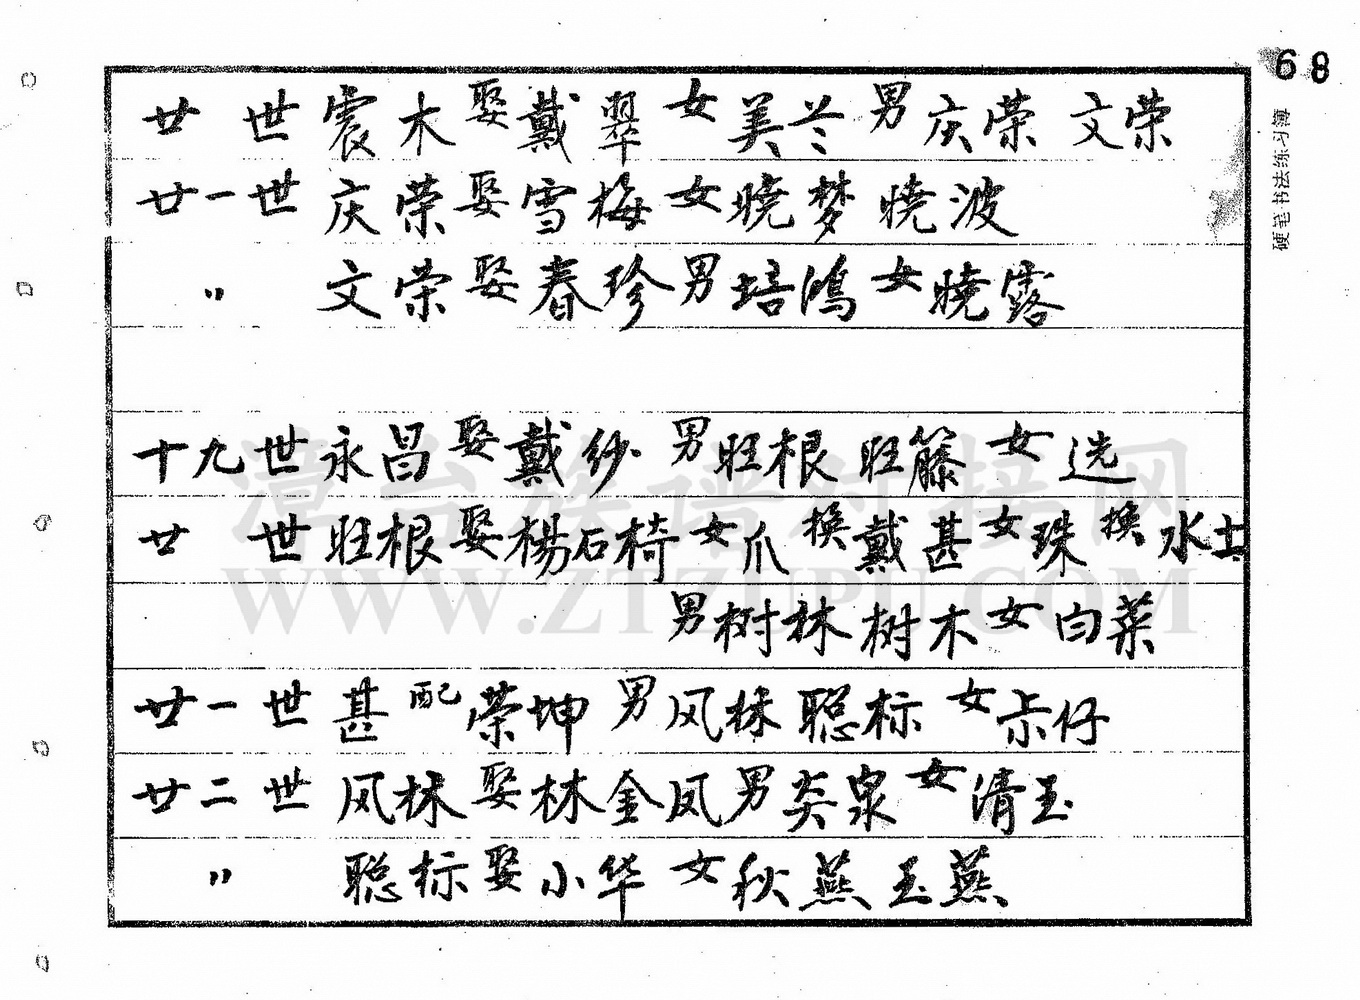 68
硬笔书法练习簿
廿 世 震木 娶 戴翠 女 美兰 男 庆荣 文荣
廿一世 庆荣 娶 雪梅 女 晓梦 晓波
〃 文荣 娶 春珍 男 培鸿 女 晓露
十九世 永昌 娶 戴纱 男 旺根 旺籐 女 选
廿 世 旺根 娶 杨石椅 女 爪 换 戴甚 女 珠 换 水
男 树林 树木 女 白菜
廿一世 甚 配 荣坤 男 风林 聪标 女 仔
廿二世 风林 娶 林金凤 男 炎泉 女 清玉
〃 聪标 娶 小华 女 秋燕 玉燕
漳台族谱对接网
WWW.ZTZUPU.COM